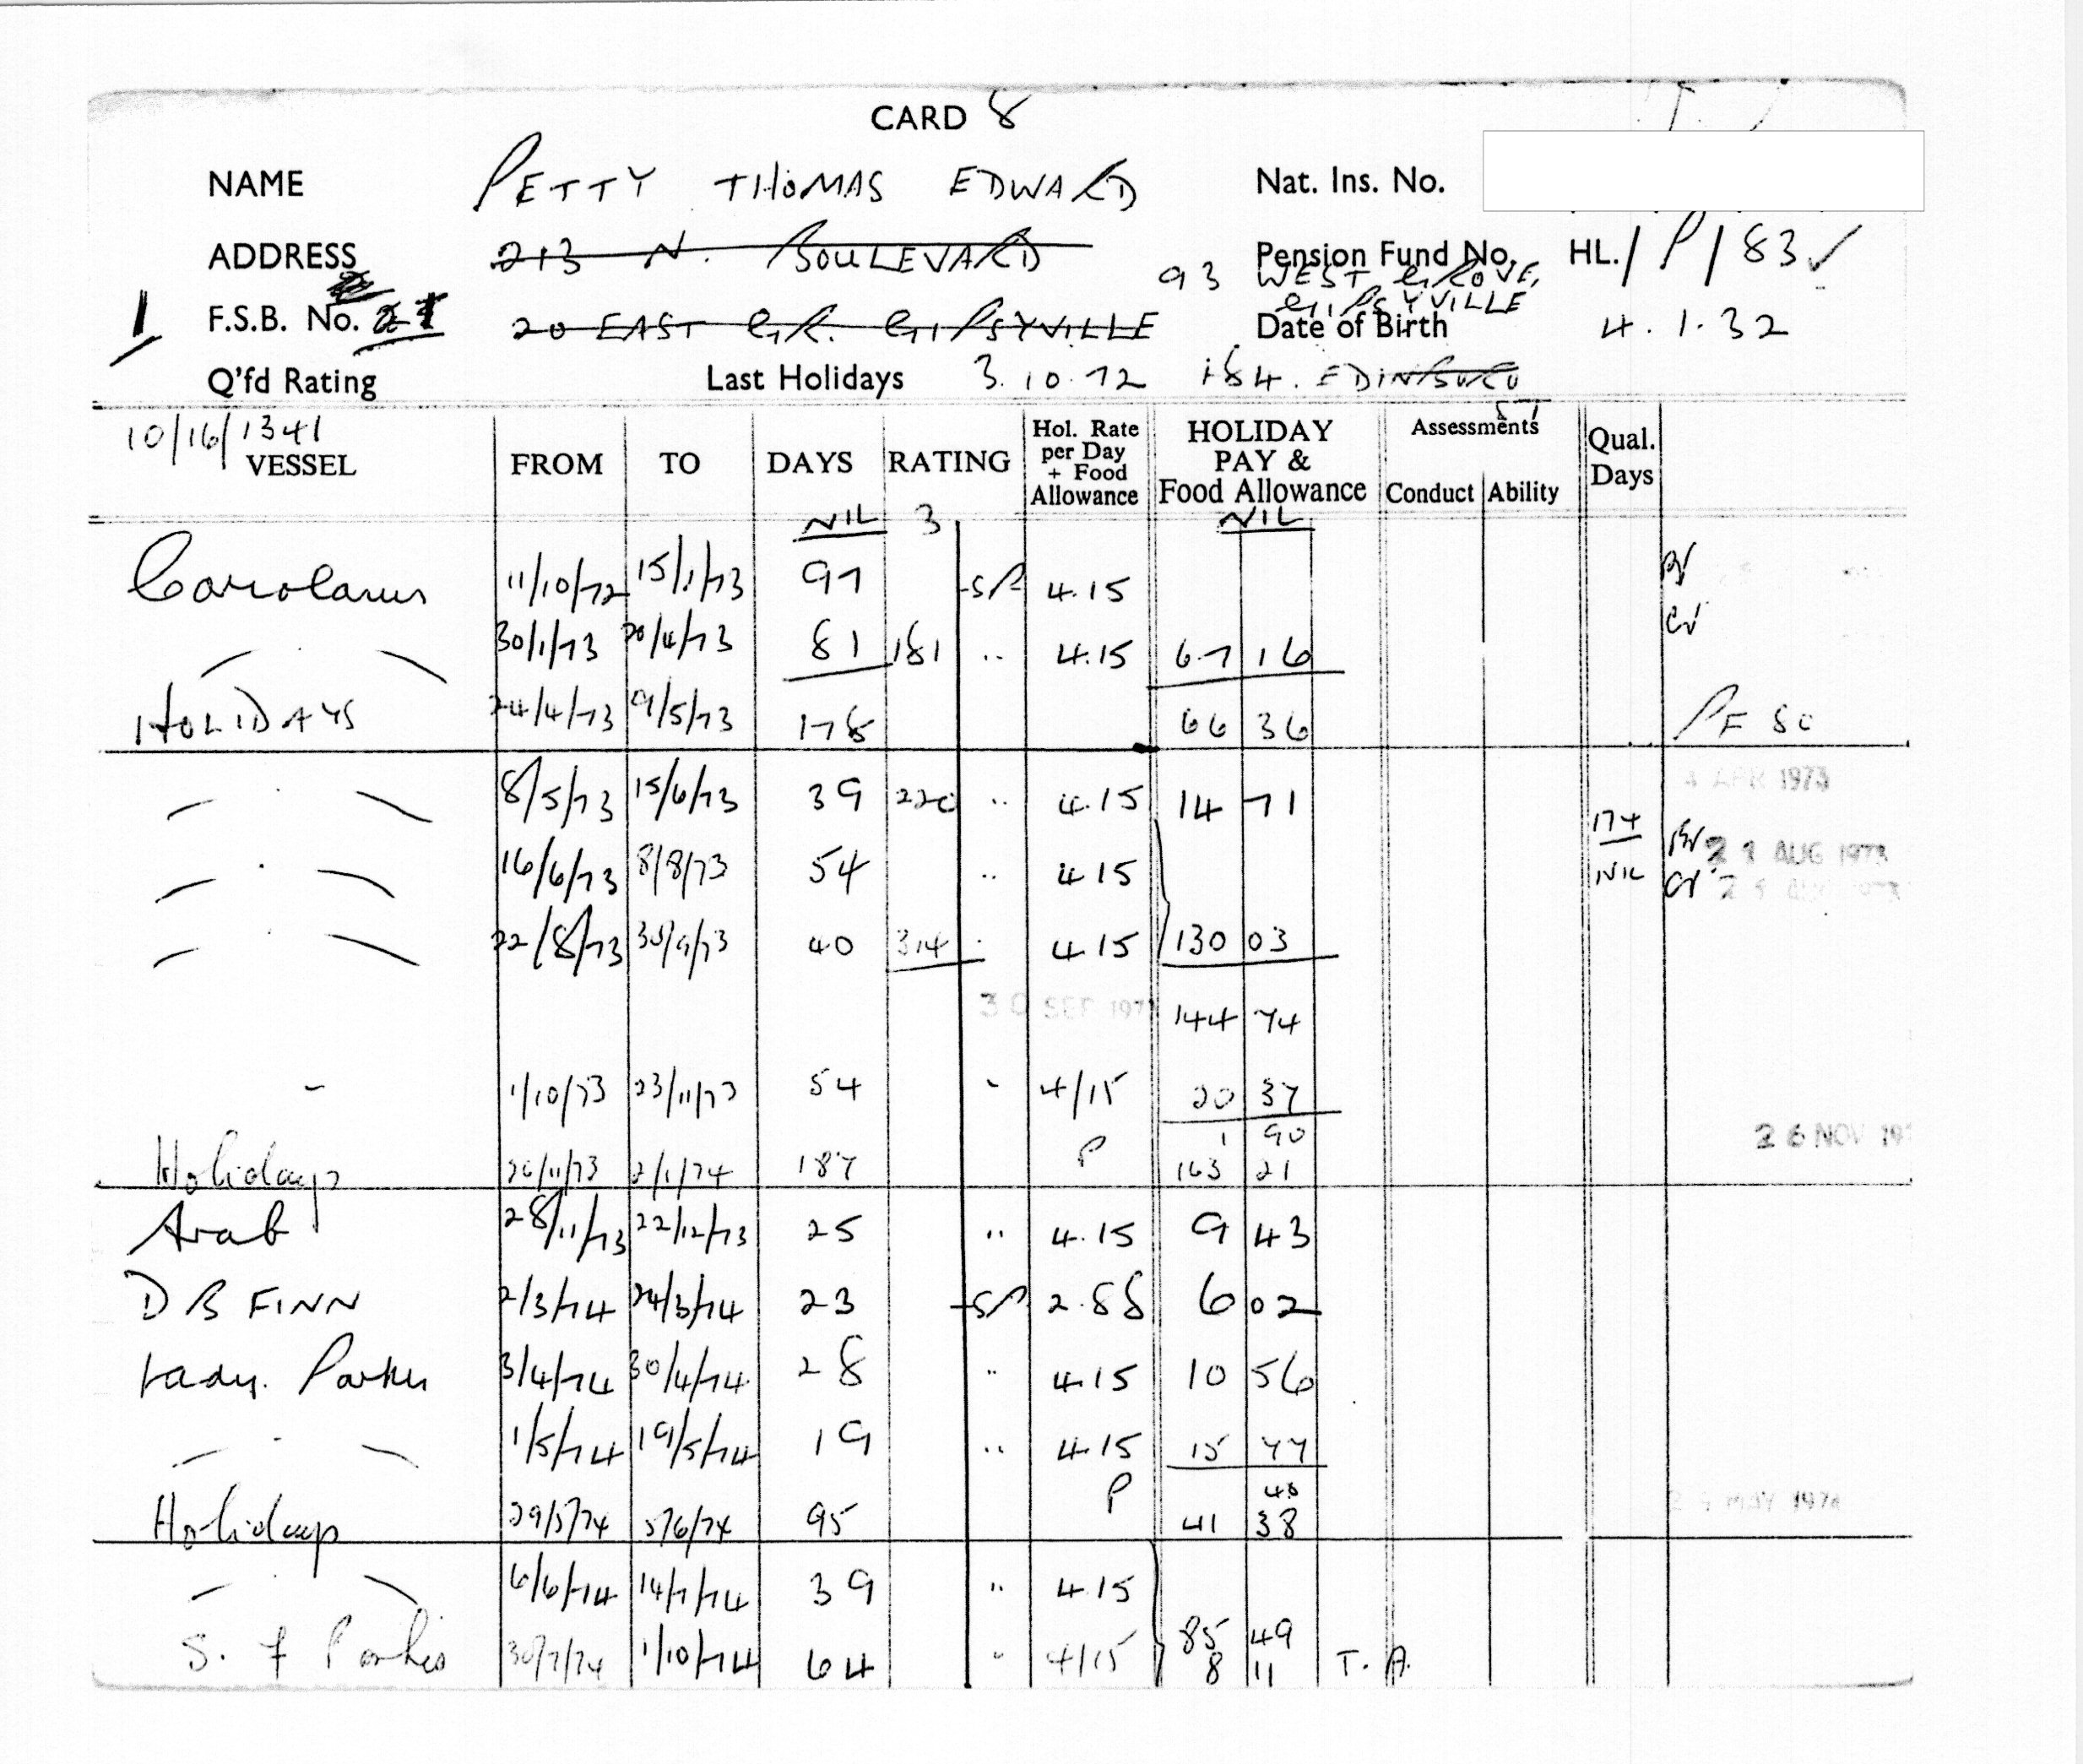 CARD 8
NAME PETTY THOMAS EDWARD Nat. Ins. No.
ADDRESS 213 N. BOULEVARD Pension Fund No. HL./P/83 ✓
93 WEST GROVE, GIPSYVILLE
1 F.S.B. No. 20 EAST GR. GIPSYVILLE Date of Birth 4.1.32
Q'fd Rating Last Holidays 3.10.72 184. EDINBURG ST
10/16/1341
VESSEL FROM TO DAYS RATING Hol. Rate per Day + Food Allowance HOLIDAY PAY & Food Allowance Assessments Conduct Ability Qual. Days
NIL 3 NIL
Coriolanus 11/10/72 15/1/73 97 SP 4.15
30/1/73 20/4/73 81 181 .. 4.15 67 16
HOLIDAYS 24/4/73 9/5/73 178 66 36 PF 80
8/5/73 15/6/73 39 220 .. 4.15 14 71 APR 1973
16/6/73 8/8/73 54 .. 4.15 174 NIL 21 AUG 1973
22/8/73 30/9/73 40 314 .. 4.15 130 03
30 SEP 197 144 74
1/10/73 23/11/73 54 " 4/15 20 37
1 90 26 NOV 19
Holidays 26/11/73 2/1/74 187 P 163 21
Arab 28/11/73 22/12/73 25 .. 4.15 9 43
D B FINN 2/3/74 24/3/74 23 SP 2.88 6 02
Lady. Parkes 3/4/74 30/4/74 28 .. 4.15 10 56
1/5/74 19/5/74 19 .. 4.15 15 77
P 48 MAY 1974
Holidays 29/5/74 5/6/74 95 41 38
6/6/74 14/7/74 39 .. 4.15
S. F Parkes 30/7/74 1/10/74 64 " 4/15 85 49
8 11 T. A.